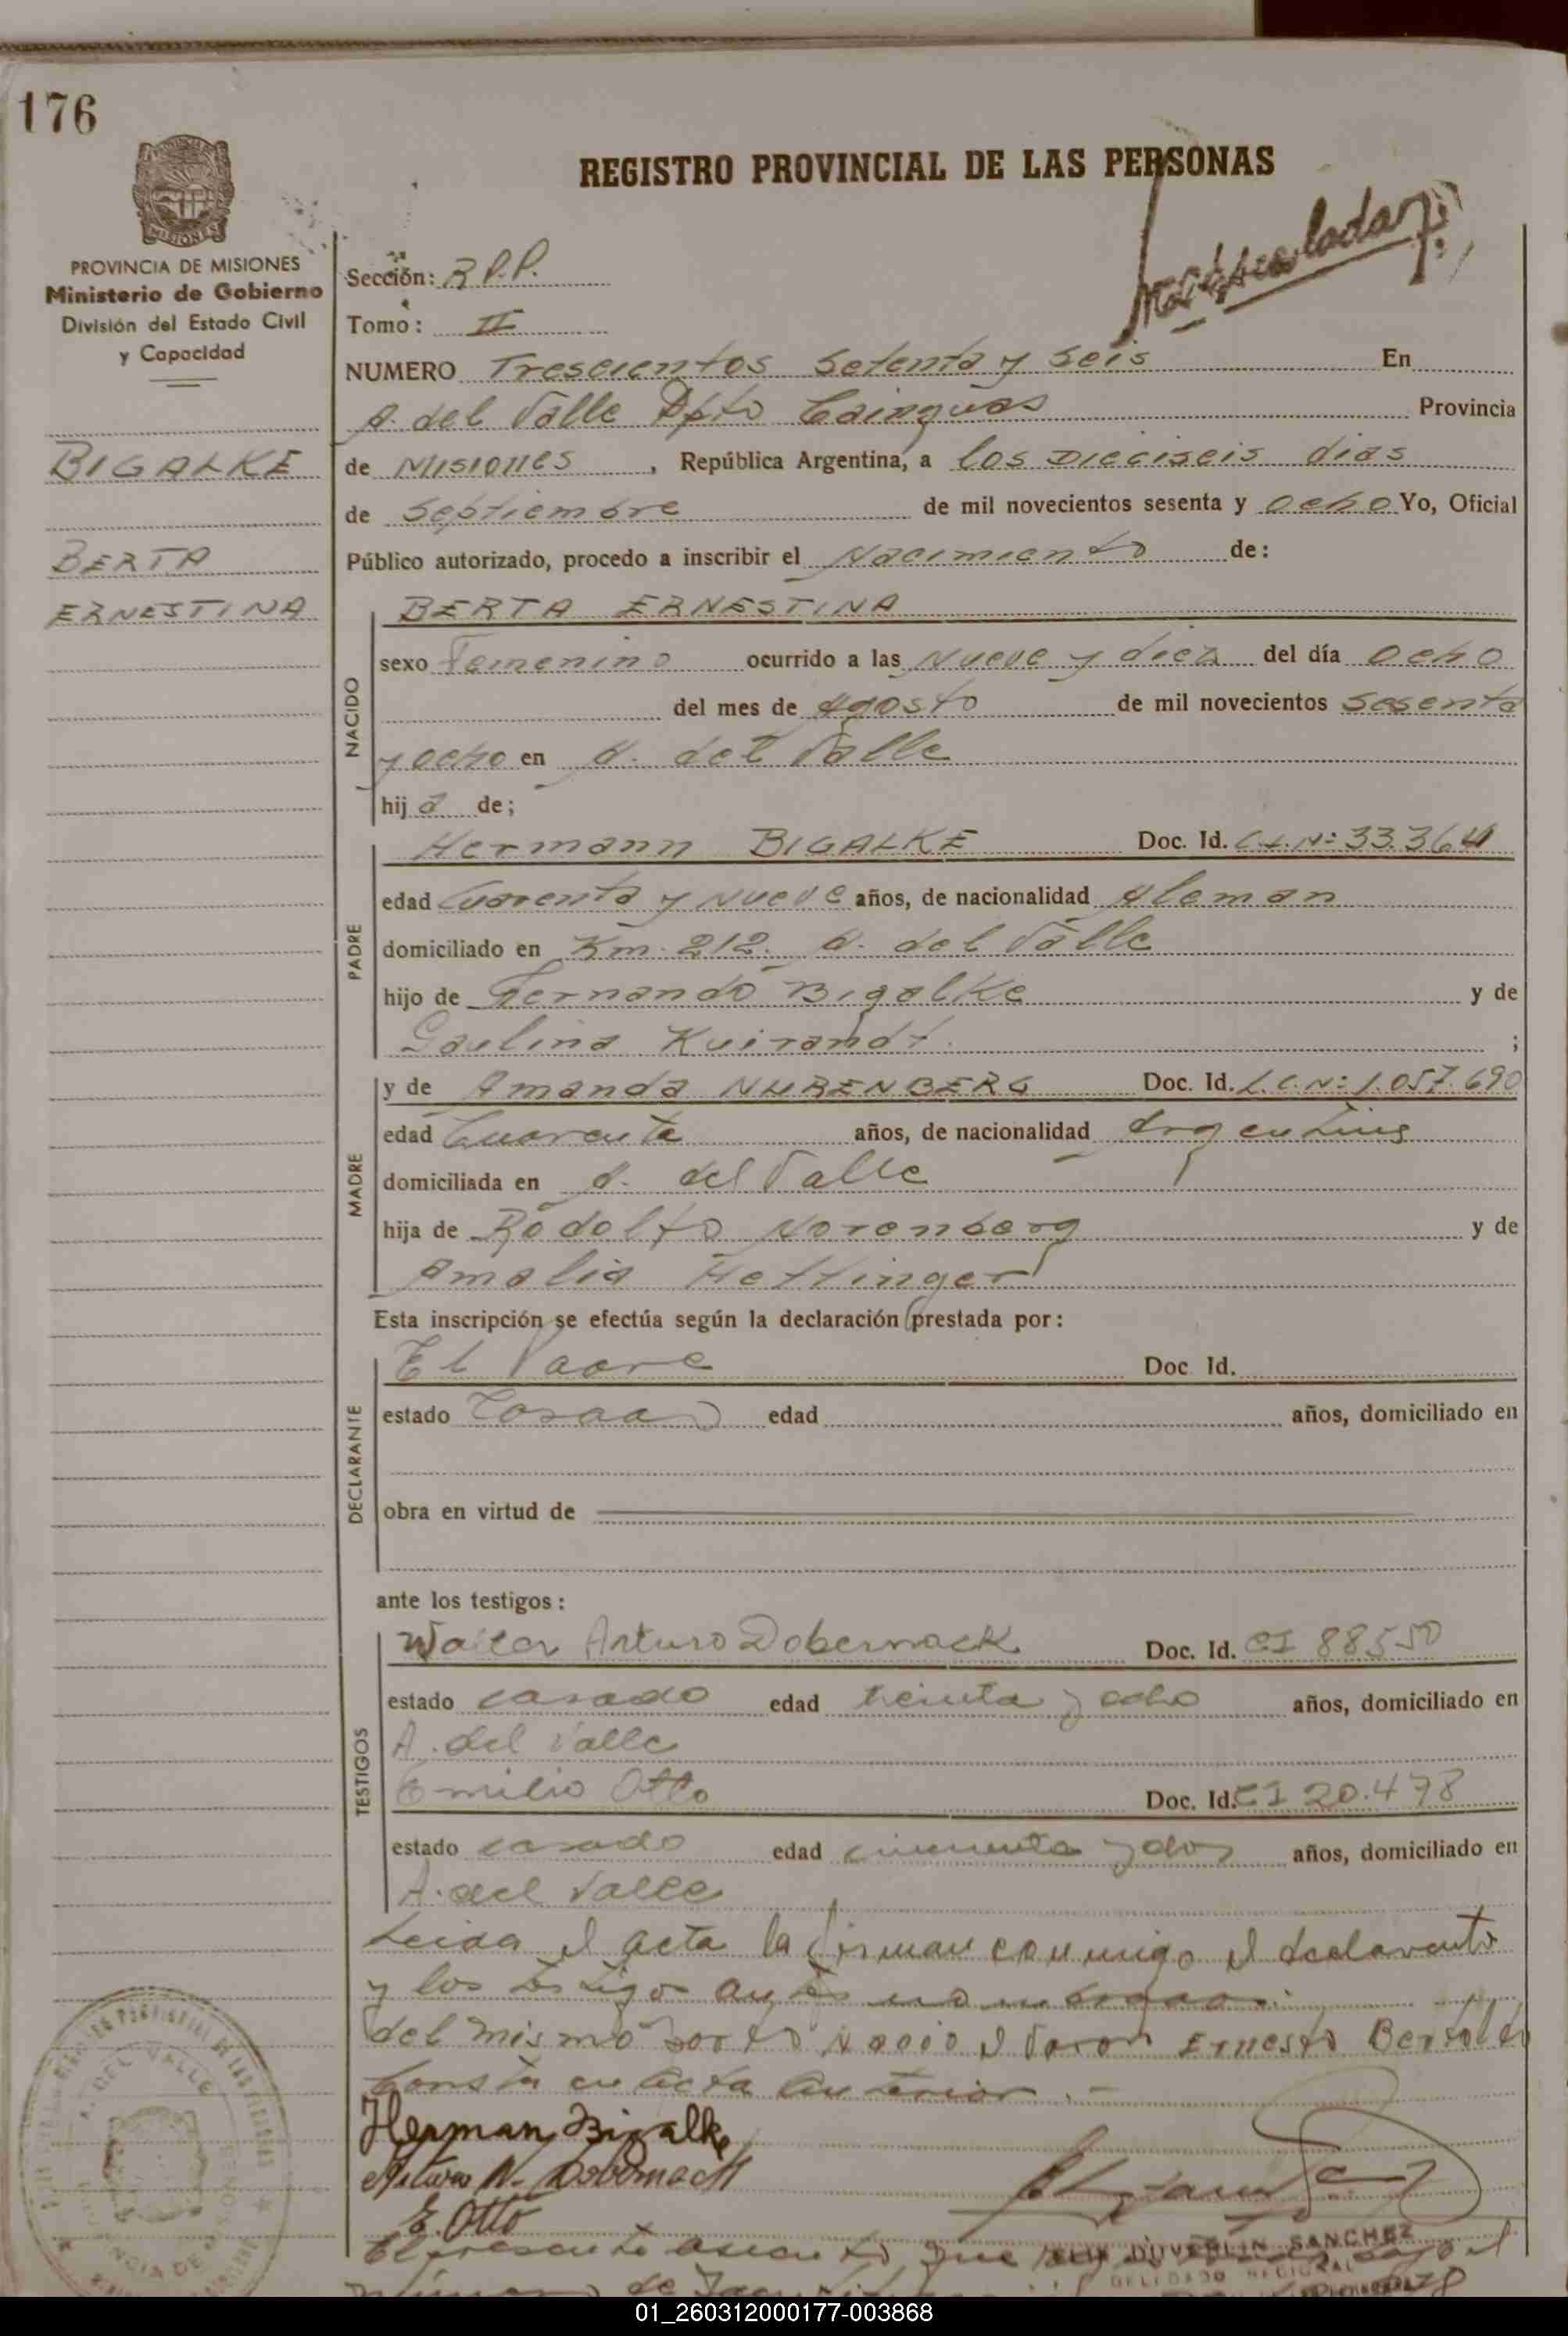 176
REGISTRO PROVINCIAL DE LAS PERSONAS
Matriculada
MISIONES
PROVINCIA DE MISIONES
Ministerio de Gobierno
División del Estado Civil
y Capacidad
BIGALKE
BERTA
ERNESTINA
Sección: R P.P.
Tomo: II
NUMERO Trescientos Setenta y Seis En
A. del Valle Dpto Cainguas Provincia
de Misiones, República Argentina, a los Dieciseis dias
de Septiembre de mil novecientos sesenta y ocho Yo, Oficial
Público autorizado, procedo a inscribir el Nacimiento de:
NACIDO
BERTA ERNESTINA
sexo Femenino ocurrido a las Nueve y diez del día ocho
del mes de Agosto de mil novecientos Sesenta
y ocho en A. del Valle
hija de;
PADRE
Hermann BIGALKE Doc. Id. C.I. Nº 33.364
edad Cuarenta y Nueve años, de nacionalidad Aleman
domiciliado en Km. 212. A. del Valle
hijo de Fernando Bigalke y de
Paulina Kuirandt ;
MADRE
y de Amanda NURENBERG Doc. Id. L.C. Nº 1.057.690
edad Cuarenta años, de nacionalidad Argentina
domiciliada en A. del Valle
hija de Rodolfo Norenberg y de
Amalia Hettinger
Esta inscripción se efectúa según la declaración prestada por:
DECLARANTE
El Padre Doc. Id.
estado Casado edad años, domiciliado en
obra en virtud de
ante los testigos:
TESTIGOS
Walter Arturo Dobernack Doc. Id. CI 88550
estado casado edad treinta y ocho años, domiciliado en
A. del Valle
Emilio Otto Doc. Id. CI 20.478
estado casado edad cincuenta y dos años, domiciliado en
A. del Valle
Leida el acta la firman conmigo el declarante
y los testigos antes
del mismo parto Nacio el Varon Ernesto Bertoldo
Consta en acta anterior.-
Herman Bigalke
Arturo W. Dobernack
E. Otto
DUVERLIN SANCHEZ
DELEGADO REGIONAL
El presente asiento que
A. DEL VALLE
01_260312000177-003868